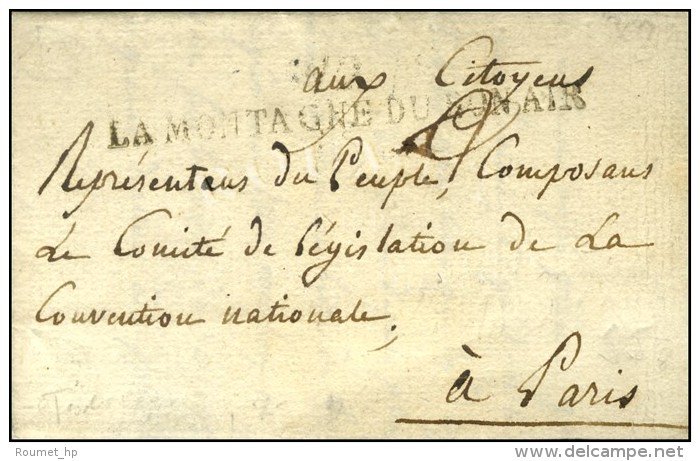 aux Citoyens
LA MONTAGNE DU BON AIR
Représentans du Peuple, Composans
Le Comité de Législation de La
Convention nationale,
à Paris
Roumet_hp
delcampe.net